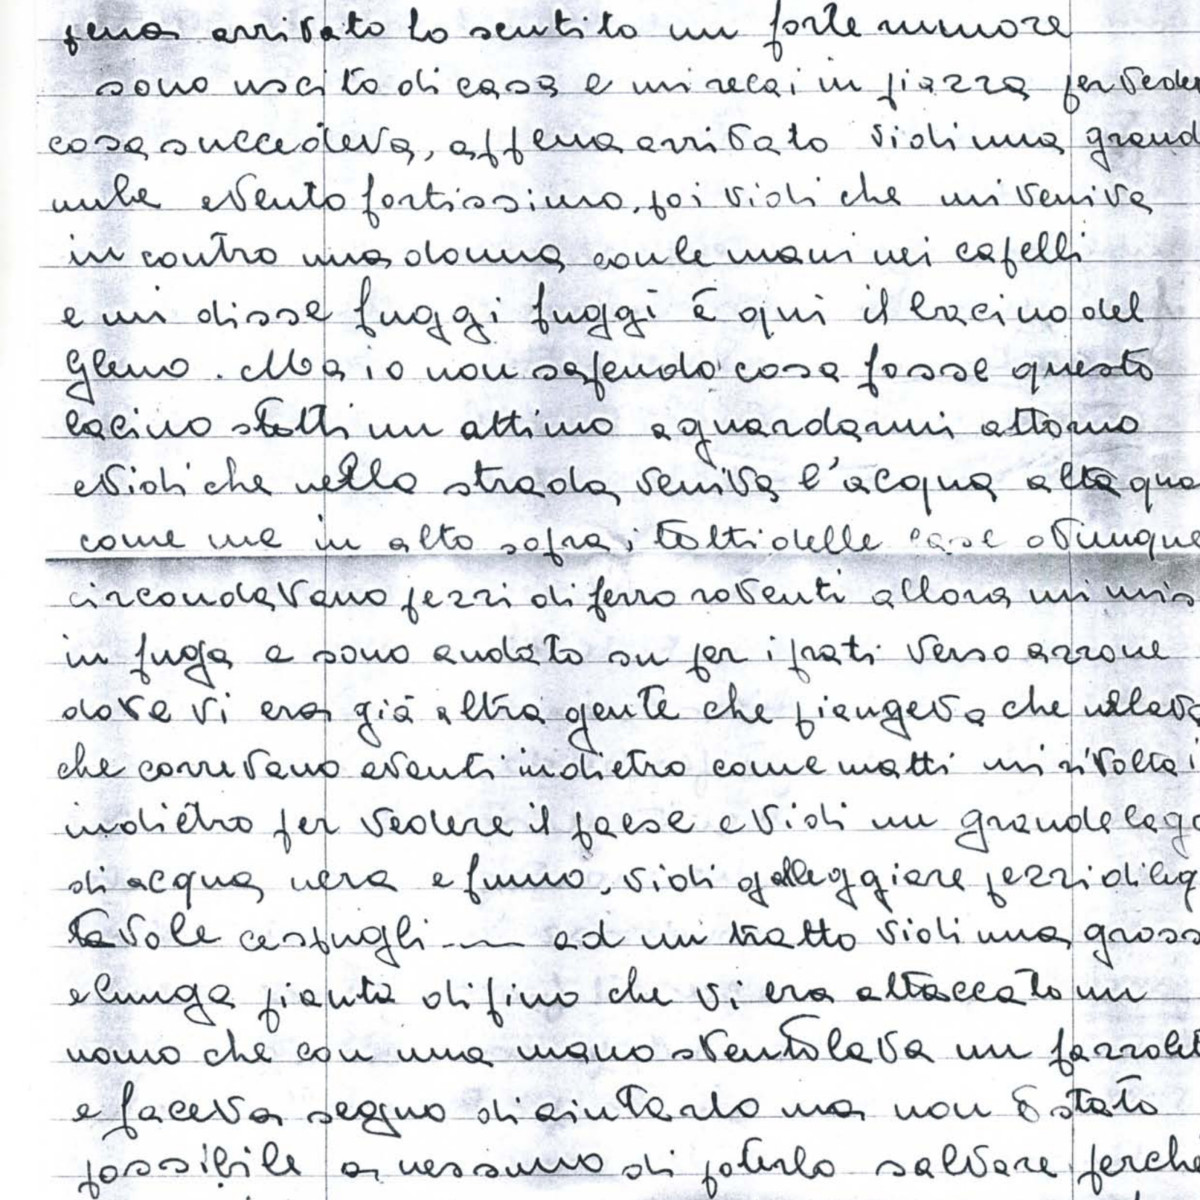 pena arrivato ho sentito un forte rumore
sono uscito di casa e mi recai in piazza per veder
cosa succedeva, appena arrivato vidi una grand
nube e vento fortissimo, poi vidi che mi veniva
in contro una donna con le mani nei capelli
e mi disse fuggi fuggi è qui il bacino del
Gleno. Ma io non sapendo cosa fosse questo
bacino stetti un attimo a guardarmi attorno
e vidi che nella strada veniva l'acqua alta qua
come me in alto sopra i tetti delle case ovunque
circondavano pezzi di ferro roventi allora mi mis
in fuga e sono andato su per i prati verso azzone
dove vi era già altra gente che piangeva che urlava
che correvano eventi indietro come matti mi rivoltai
indietro per vedere il paese e vidi un grande lago
di acqua nera e fumo, vidi galleggiare pezzi di leg
tavole cespugli —— ad un tratto vidi una gross
e lunga pianta di pino che vi era attaccato un
uomo che con una mano sventolava un fazzolet
e faceva segno di aiutarlo ma non è stato
possibile a nessuno di poterlo salvare perche